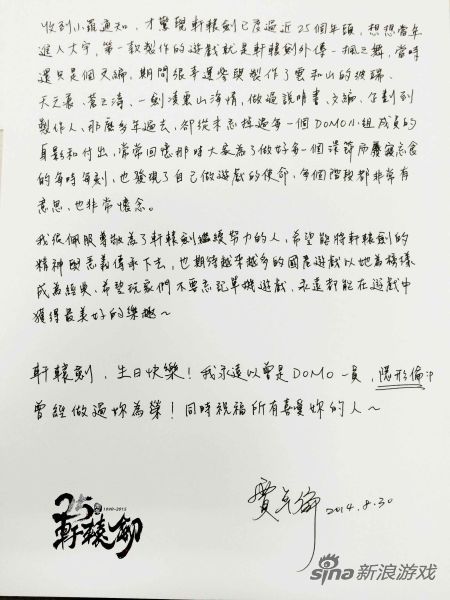 收到小羅通知，才驚覺軒轅劍已度過近25個年頭，想想當年
進入大宇，第一款製作的遊戲就是軒轅劍外傳-楓之舞，當時
還只是個文編，期間很幸運參與製作了雲和山的彼端、
天之痕、蒼之濤、一劍凌雲山海情，做過說明書、文編、企劃到
製作人，那麼多年過去，卻從未忘掉過每一個DOMO小組成員的
身影和付出，常常回憶那時大家為了做好每一個環節而廢寢忘食
的每時每刻，也發現了自己做遊戲的使命，每個階段都非常有
意思，也非常懷念。
我很佩服尊敬為了軒轅劍繼續努力的人，希望能將軒轅劍的
精神與意義傳承下去，也期待越來越多的國產遊戲以她為榜樣
成為經典，希望玩家們不要忘記單機遊戲，永遠都能在遊戲中
獲得最美好的樂趣～
軒轅劍，生日快樂！我永遠以曾是DOMO一員，隱形
曾經做過妳為榮！同時祝福所有喜愛妳的人～
2014.8.30
25 1990-2015
軒轅劍
sina新浪游戏